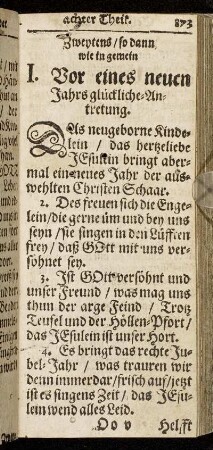 achter Theil. 873
Zweytens / so dann
wie in gemein
I. Vor eines neuen
Jahrs glückliche An-
tretung.
DAs neugeborne Kinde-
lein / das hertzeliebe
JEsulein bringt aber-
mal ein neues Jahr der aus-
wehlten Christen Schaar.
2. Des freuen sich die Enge-
lein / die gerne üm und bey uns
seyn / sie singen in den Lüfften
frey / daß GOtt mit uns ver-
sohnet sey.
3. Ist GOtt versöhnt und
unser Freund / was mag uns
thun der arge Feind / Trotz
Teufel und der Höllen-Pfort /
das JEsulein ist unser Hort.
4. Es bringt das rechte Ju-
bel-Jahr / was trauren wir
denn immerdar / frisch auf / jetzt
ist es singens Zeit / das JEsu-
lein wend alles Leid.
Oo v Helfft